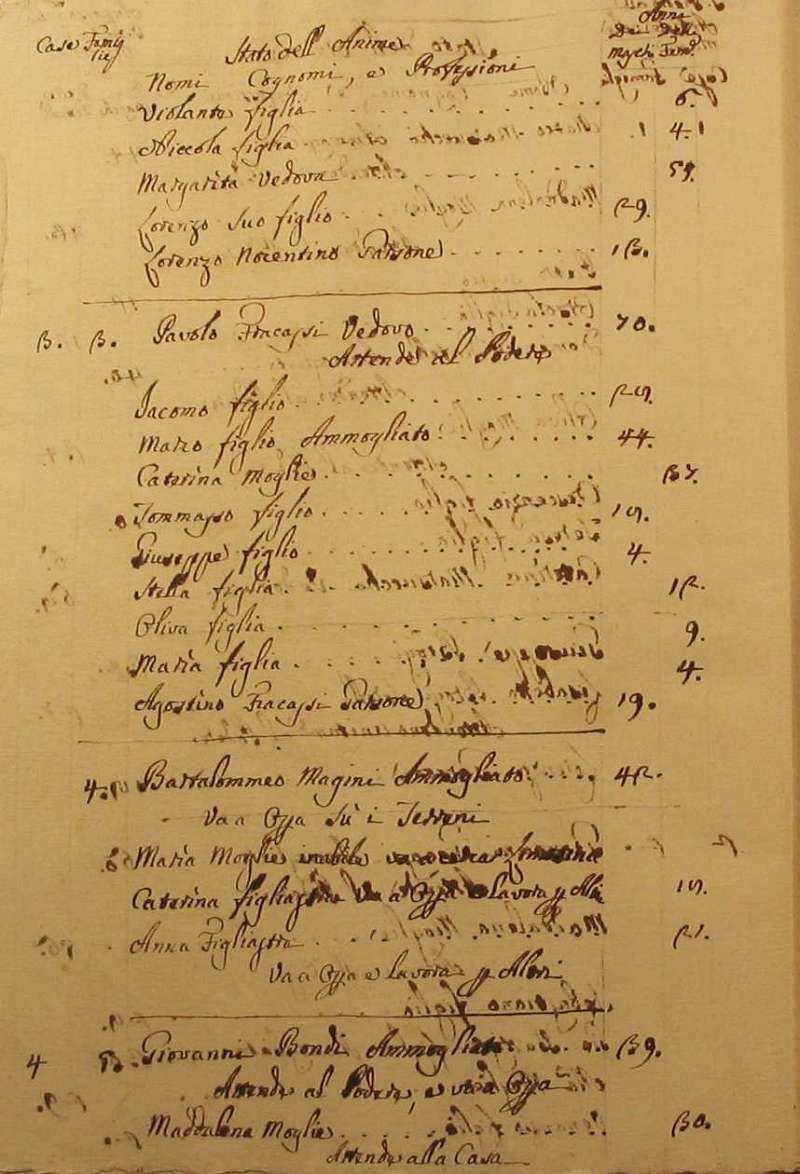 Case Famiglie
Stato dell'Anime
Nomi Cognomi, e Professioni
Anni
Dei Delle
Maschi Fem.
Violante figlia 6.
Niccola figlia 4.
Margarita Vedova 59.
Lorenzo suo figlio 29.
Lorenzo Norentino Garzone 13.
3. 3. Pavolo Fracassi Vedovo 70.
Attende al Podere
Iacomo figlio 25.
Mario figlio Ammogliato 44.
Caterina Moglie 37.
Tommasso figlio 15.
Giuseppe figlio 4.
Stella figlia 12.
Oliva figlia 9.
Maria figlia 4.
Agostino Fracassi Garzone 19.
4. Bartolommeo Magini Ammogliato 42.
Va a Opra Su i Terreni
Maria Moglie inabile
Caterina figliastra Va a Opra e Lavora p Altri 15.
Anna Figliastra 21.
Va a Opra e Lavora p Altri
4 5. Giovanni Bondi Ammogliato 39.
Attende al Podere, e va a Opra
Maddalena Moglie 30.
Attende alla Casa